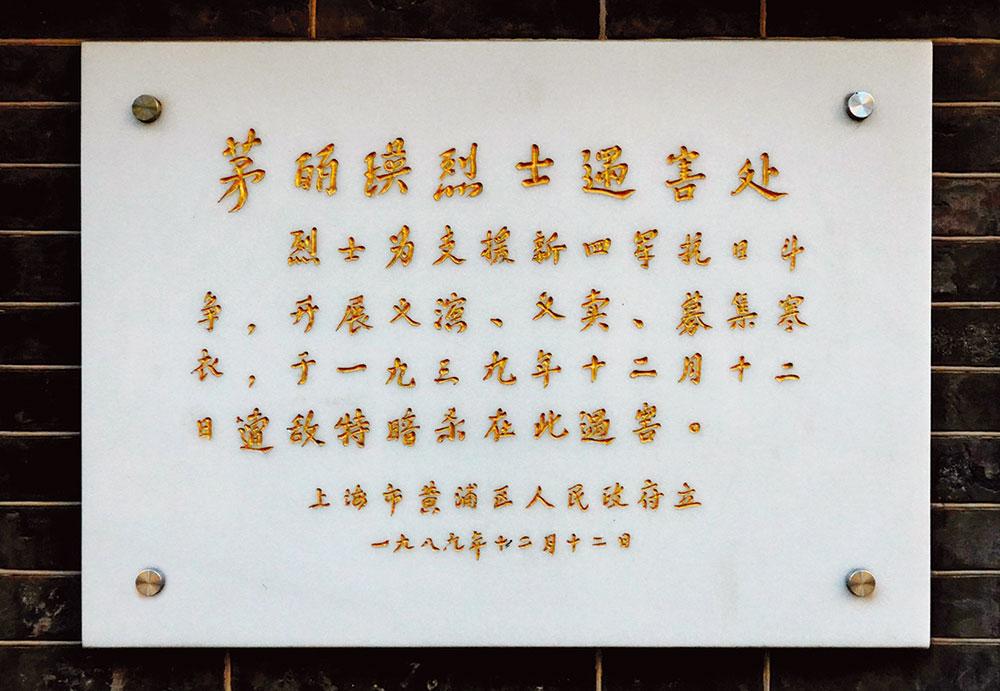 茅丽瑛烈士遇害处
烈士为支援新四军抗日斗
争，开展义演、义卖、募集寒
衣，于一九三九年十二月十二
日遭敌特暗杀在此遇害。
上海市黄浦区人民政府立
一九八九年十二月十二日